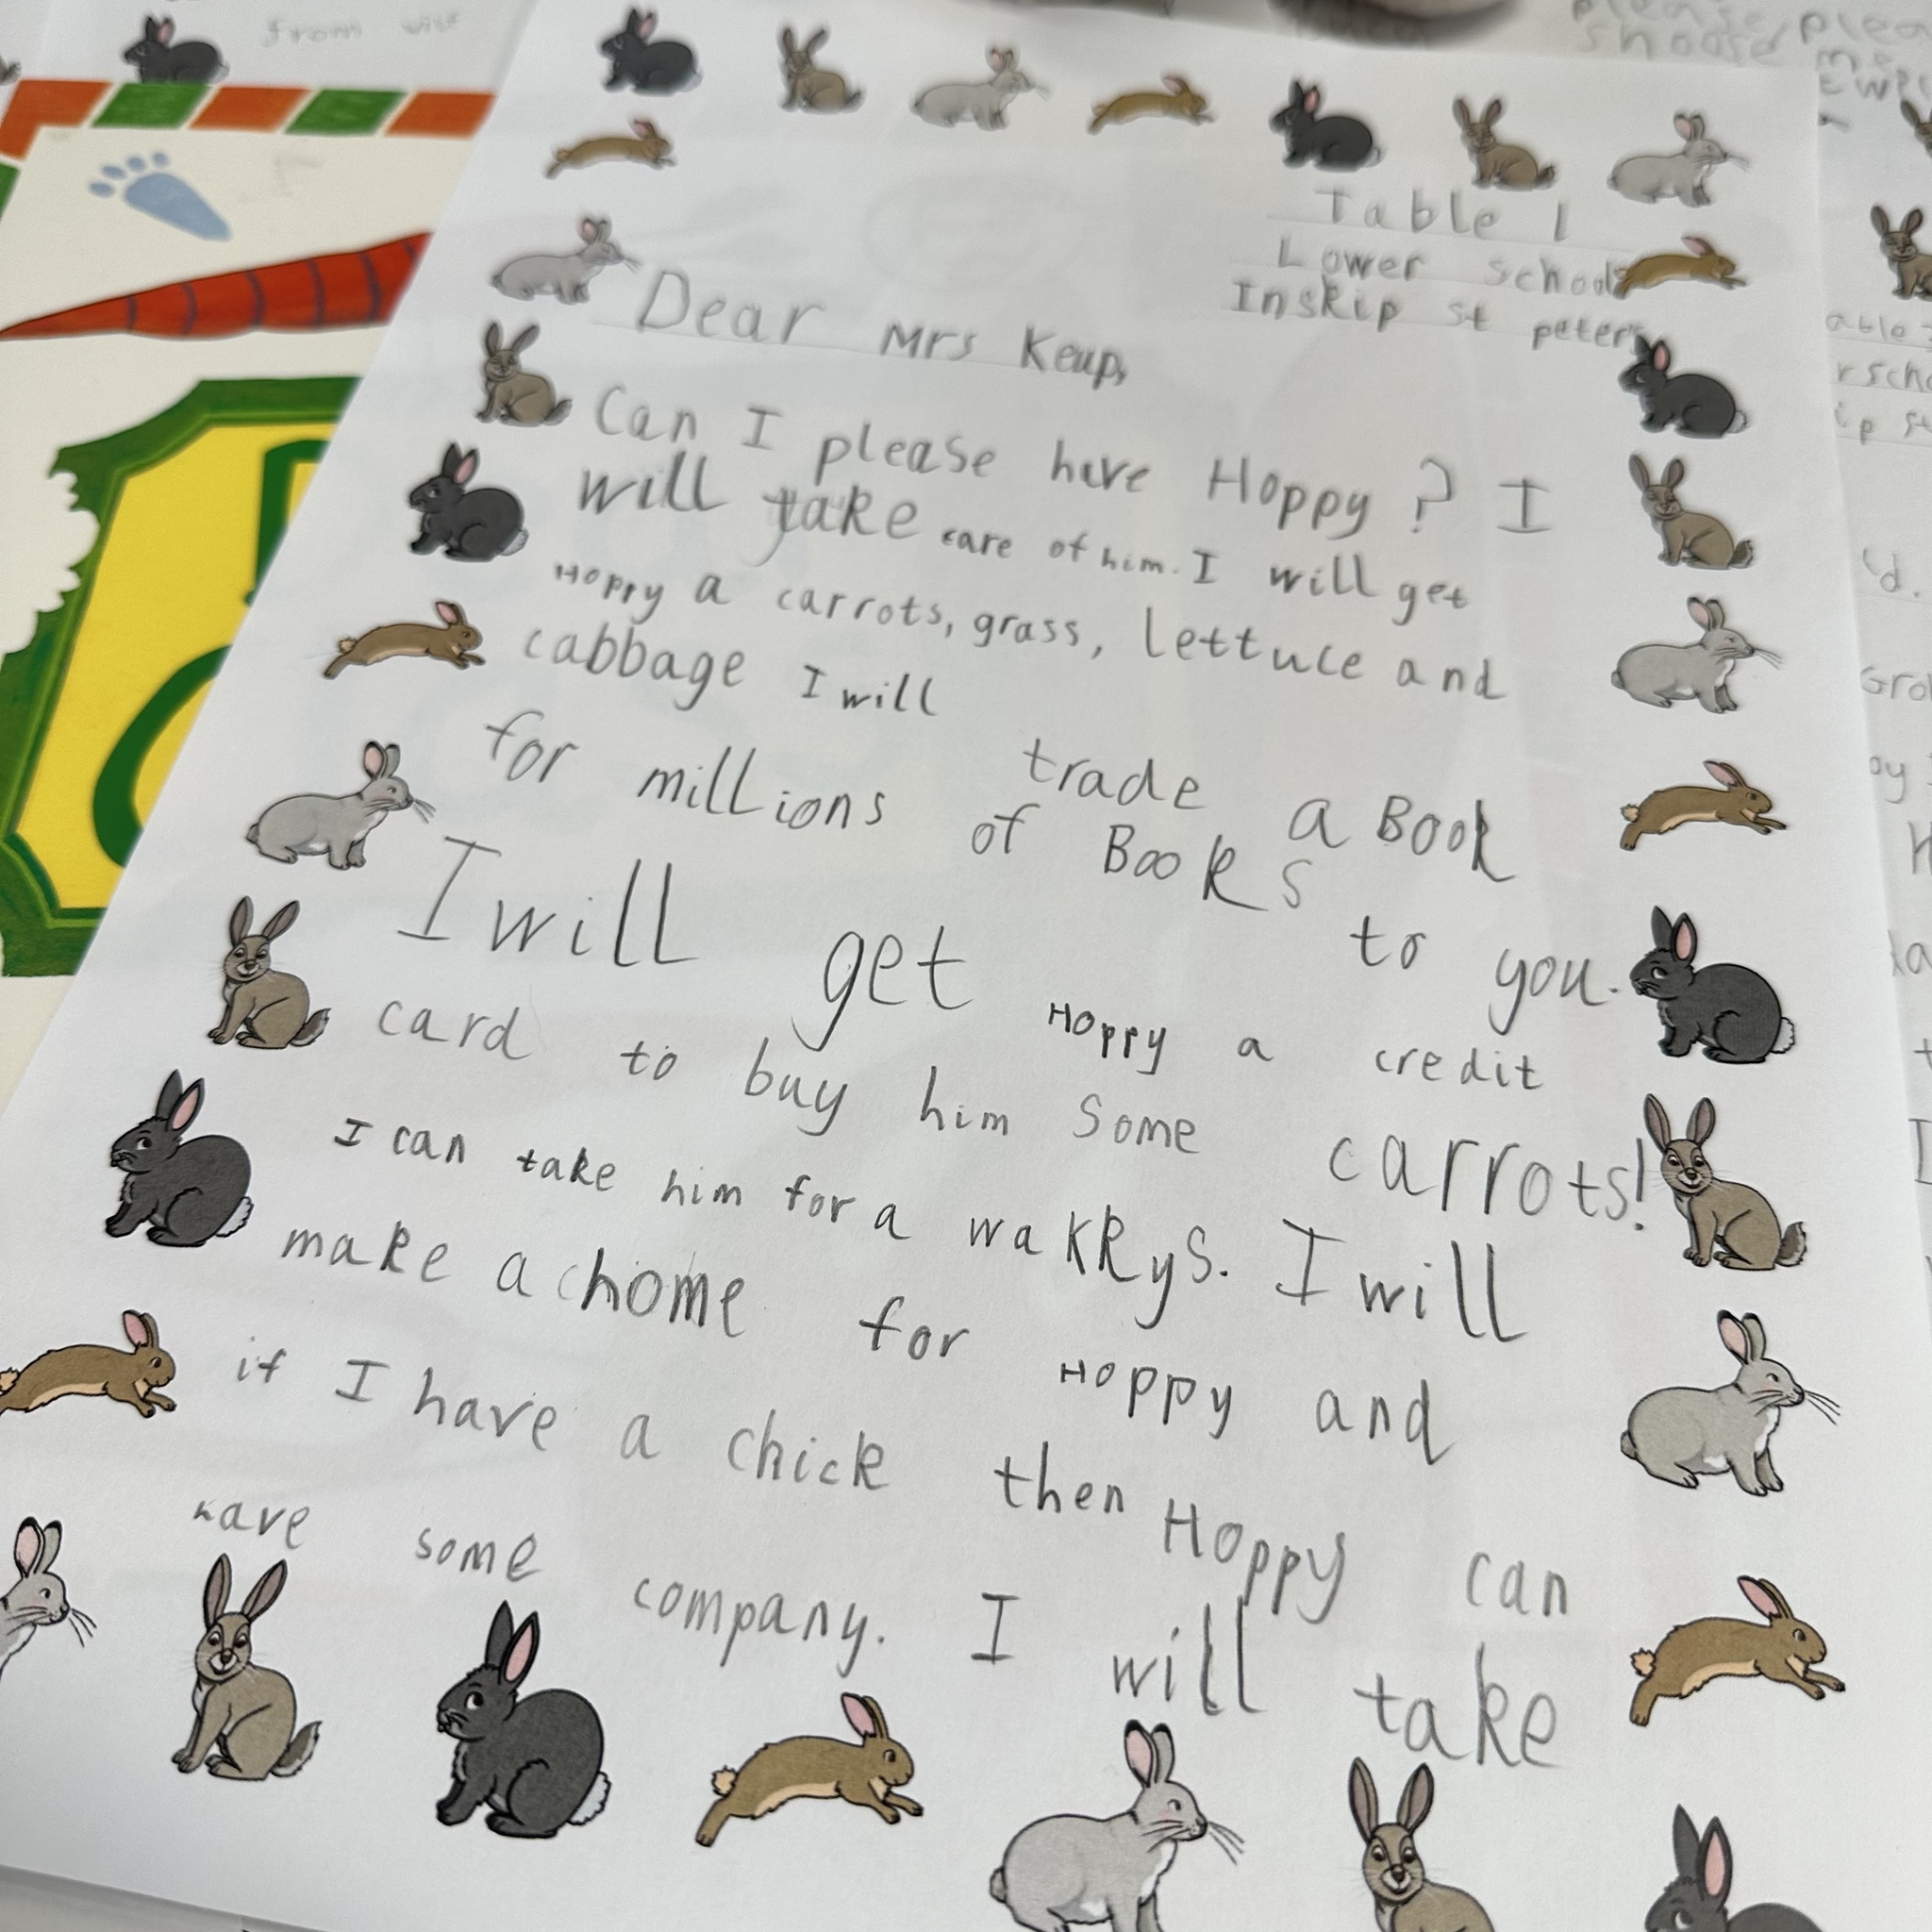 from
Table 1
Lower school
Inskip st peters
Dear Mrs Keup,
Can I please have Hoppy? I
will take care of him. I will get
Hoppy a carrots, grass, lettuce and
cabbage I will trade a Book
for millions of Books to you.
I will get Hoppy a credit
card to buy him some carrots!
I can take him for a wakkys. I will
make a home for Hoppy and
if I have a chick then Hoppy can
have some company. I will take